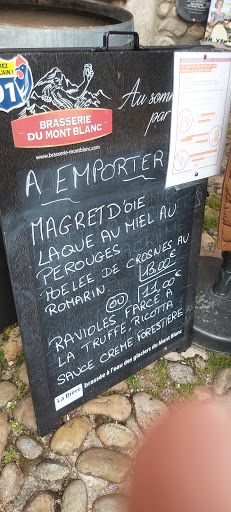 01
Au som
par
BRASSERIE
DU MONT BLANC
www.brasserie-montblanc.com
A EMPORTER
MAGRET D'OIE
LAQUE AU MIEL AU
PEROUGES
POELEE DE CROSNES AU
ROMARIN.
13.00€
OU
11,00€
RAVIOLES FARCE A
LA TRUFFE, RICOTTA
SAUCE CREME FORESTIERE
La Bière brassée à l'eau des glaciers du Mont Blanc